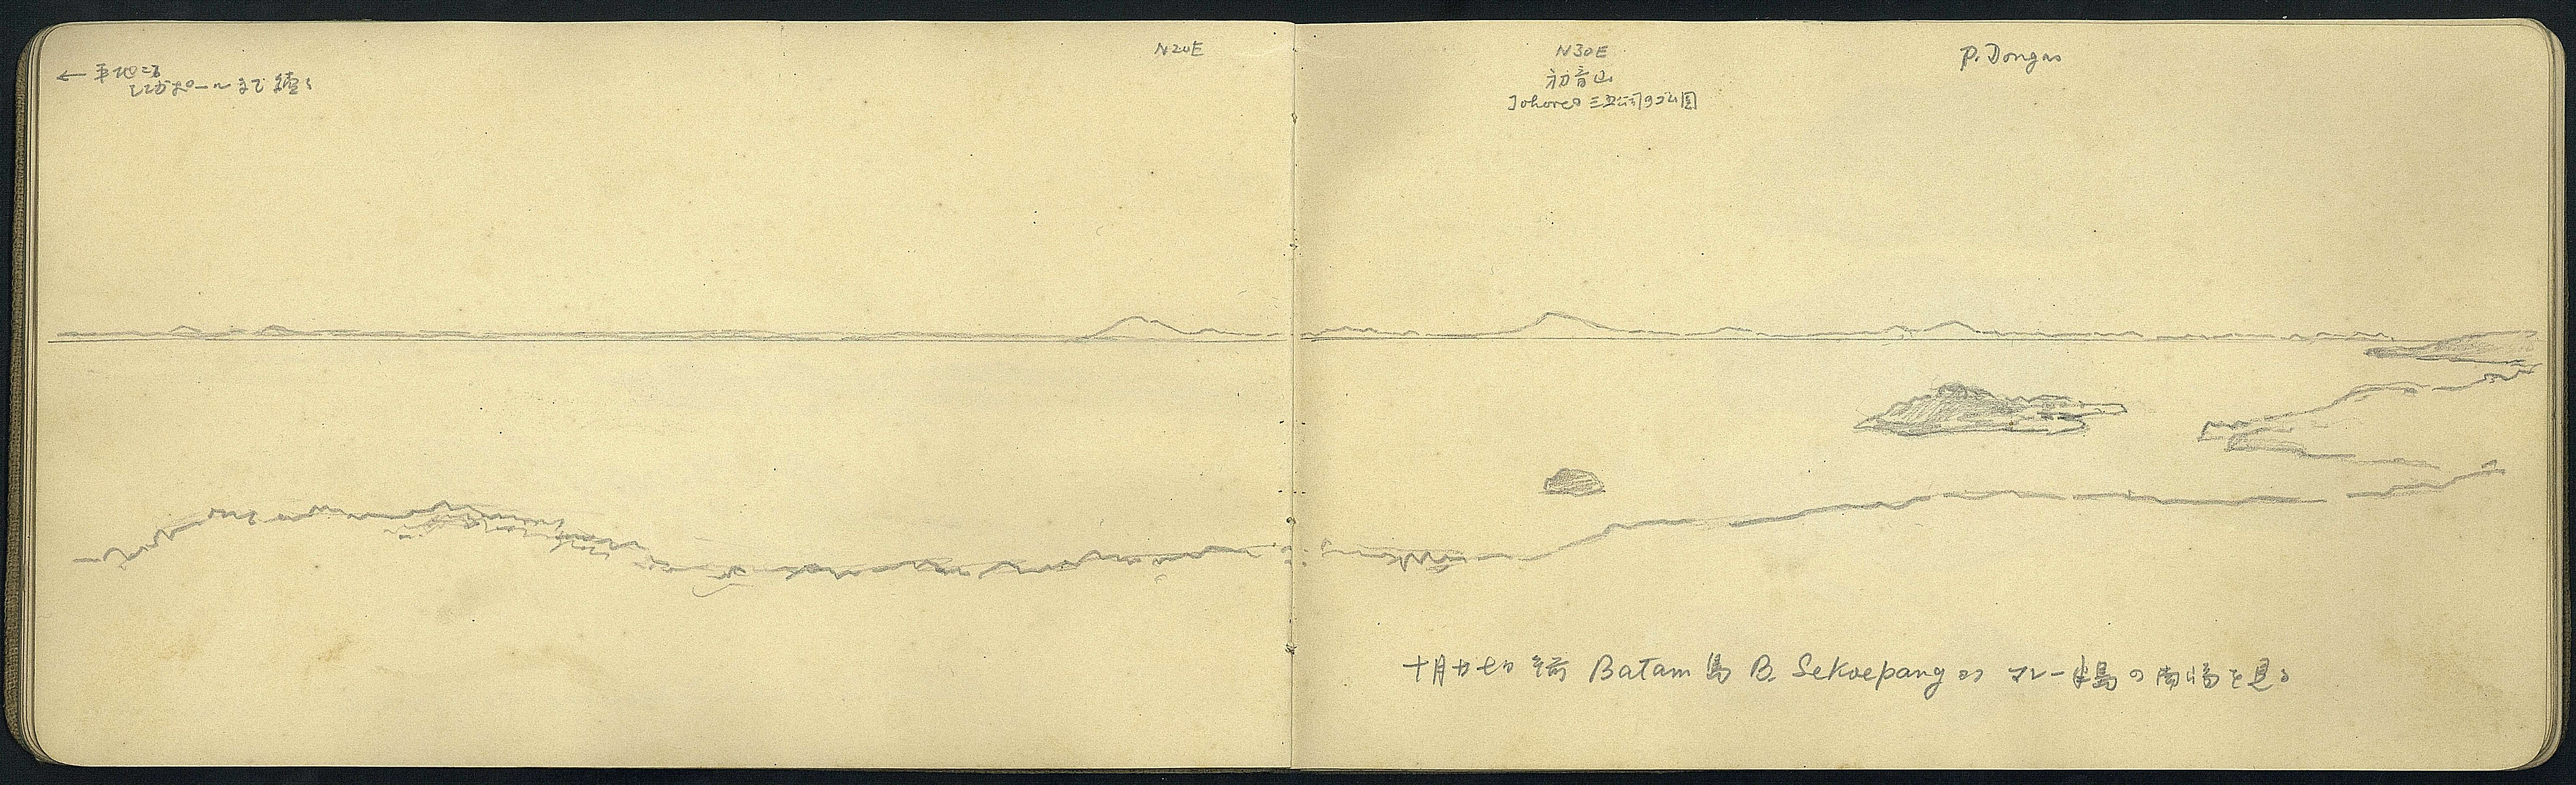 ← 平地こゝ
シンガポールまで続く
N20E
N30E
初音山
Johoreの三五公司ゴム園
P. Dongas
十月廿七日 Batam島 B. Sekoepang マレー半島の南端を見る